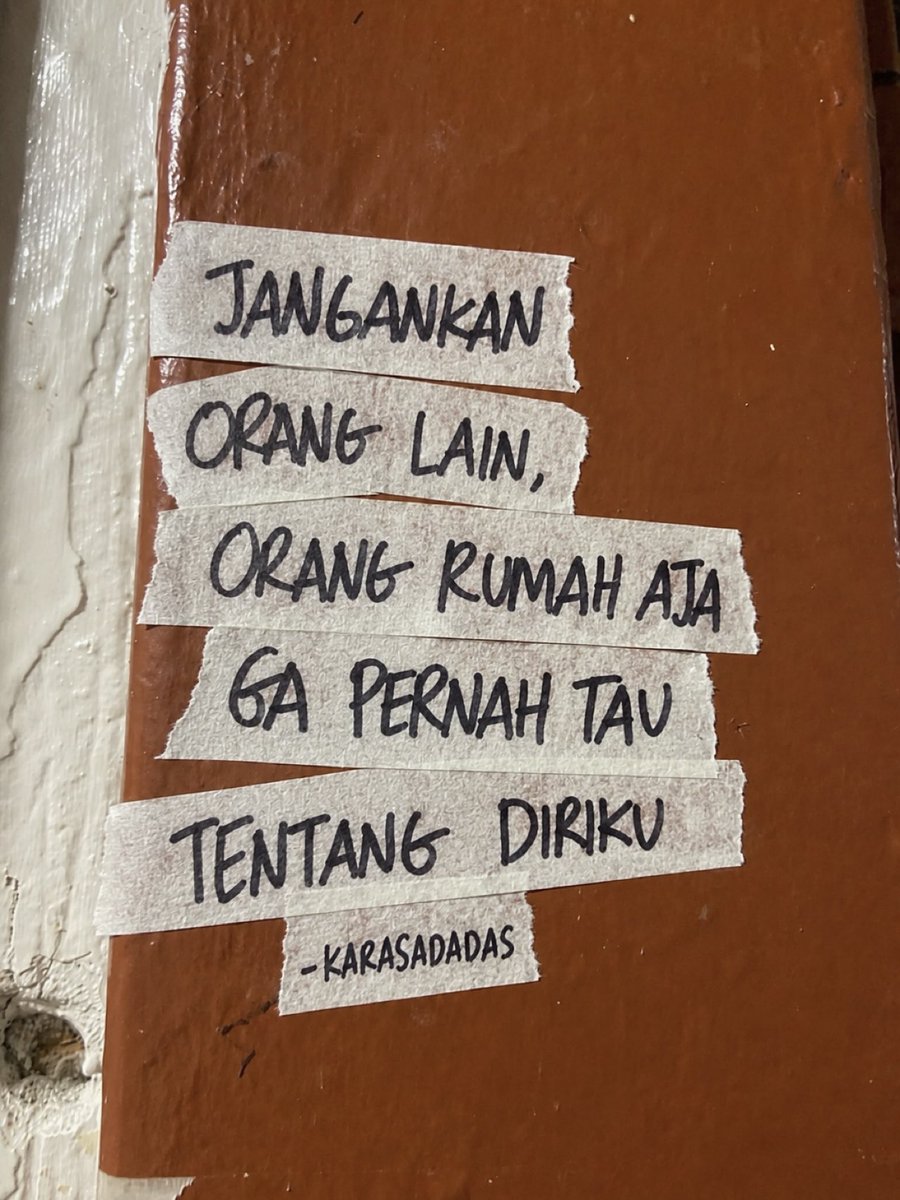 JANGANKAN
ORANG LAIN,
ORANG RUMAH AJA
GA PERNAH TAU
TENTANG DIRIKU
-KARASADADAS